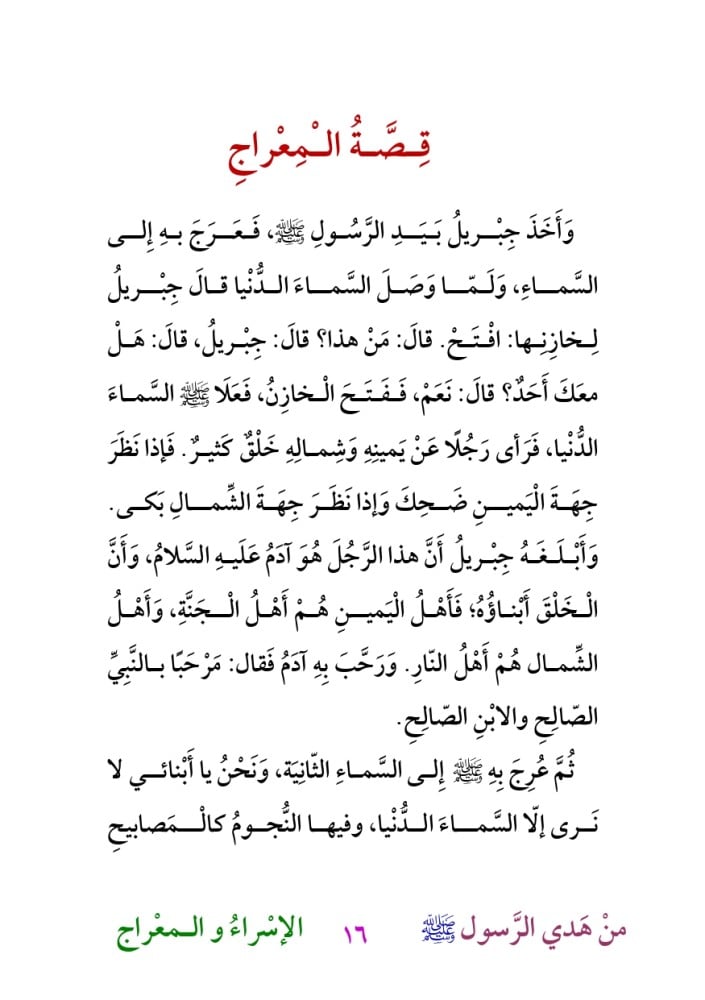 قِصَّةُ الْمِعْراجِ
وَأَخَذَ جِبْريلُ بَيَدِ الرَّسُولِ ﷺ، فَعَرَجَ بهِ إِلى
السَّماءِ، وَلَمّا وَصَلَ السَّماءَ الدُّنْيا قالَ جِبْريلُ
لِخازِنِها: افْتَحْ. قالَ: مَنْ هذا؟ قالَ: جِبْريلُ، قالَ: هَلْ
معَكَ أَحَدٌ؟ قالَ: نَعَمْ، فَفَتَحَ الْخازِنُ، فَعَلَا ﷺ السَّماءَ
الدُّنْيا، فَرَأى رَجُلًا عَنْ يَمينِهِ وَشِمالِهِ خَلْقٌ كَثيرٌ. فَإذا نَظَرَ
جِهَةَ الْيَمينِ ضَحِكَ وَإذا نَظَرَ جِهَةَ الشِّمالِ بَكى.
وَأَبْلَغَهُ جِبْريلُ أَنَّ هذا الرَّجُلَ هُوَ آدَمُ عَلَيهِ السَّلامُ، وَأَنَّ
الْخَلْقَ أَبْناؤُهُ؛ فَأَهْلُ الْيَمينِ هُمْ أَهْلُ الْجَنَّةِ، وَأَهْلُ
الشِّمال هُمْ أَهْلُ النّارِ. وَرَحَّبَ بِهِ آدَمُ فَقال: مَرْحَبًا بالنَّبِيِّ
الصّالِحِ والابْنِ الصّالِحِ.
ثُمَّ عُرِجَ بِهِ ﷺ إِلى السَّماءِ الثّانِيَة، وَنَحْنُ يا أَبْنائي لا
نَرى إلّا السَّماءَ الدُّنْيا، وفيها النُّجومُ كالْمَصابيحِ
منْ هَدي الرَّسول ﷺ ١٦ الإسْراءُ و المعْراج